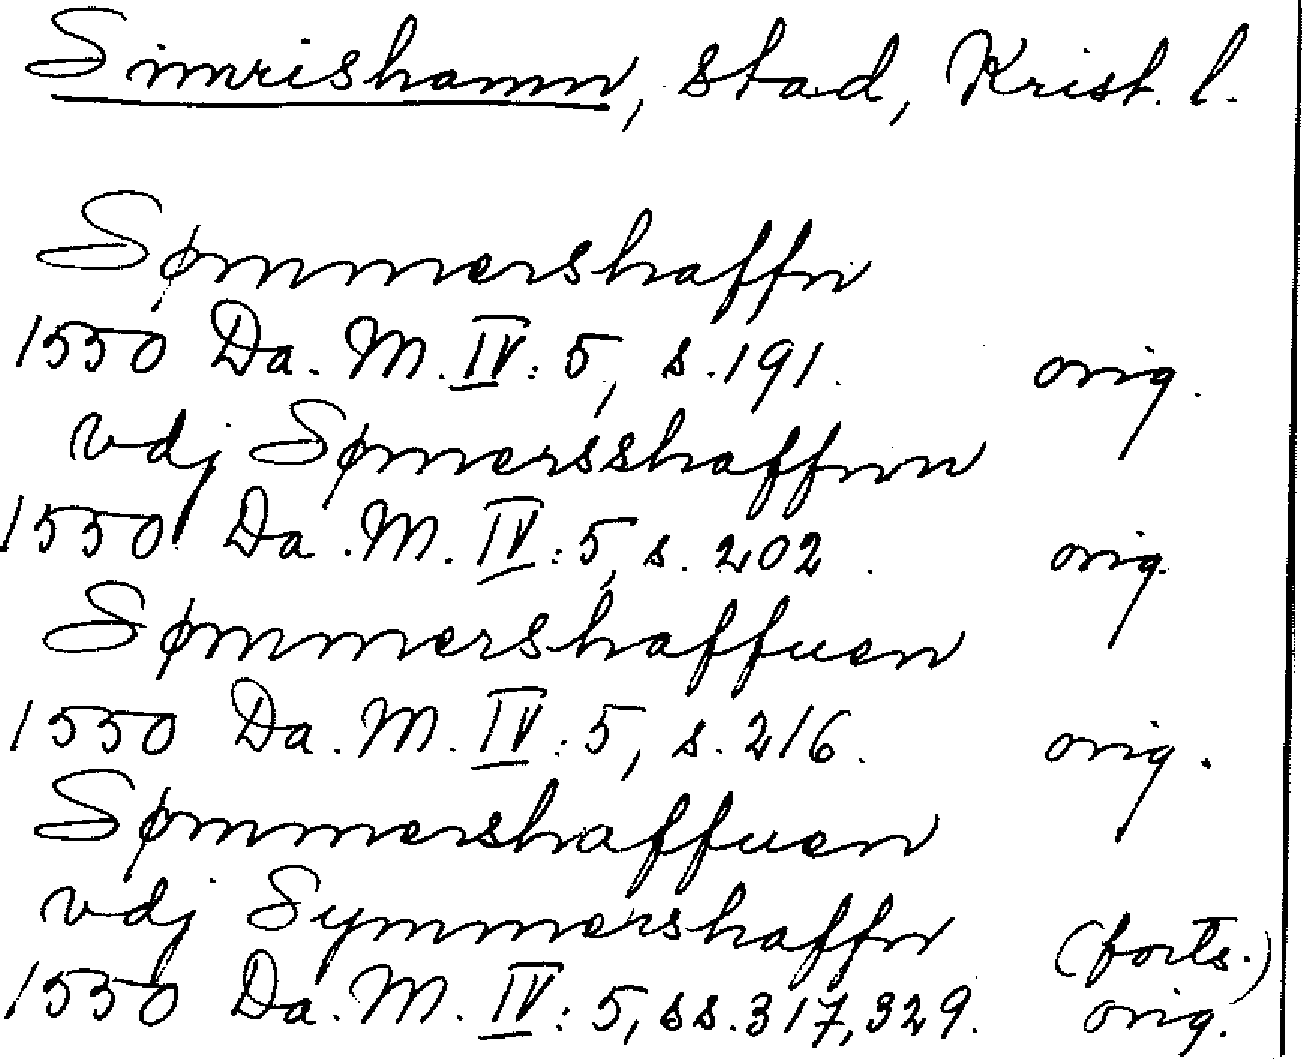 Simrishamn, stad, Krist. l.
Sømmershaffn
1550 Da. M. IV: 5, s. 191. orig.
vdj Sømersshaffnn
1550 Da. M. IV: 5, s. 202. orig.
Sømmershaffuen
1550 Da. M. IV: 5, s. 216. orig.
Sømmershaffuen
vdj Symmershaffn (forts.)
1550 Da. M. IV: 5, ss. 317, 329. orig.